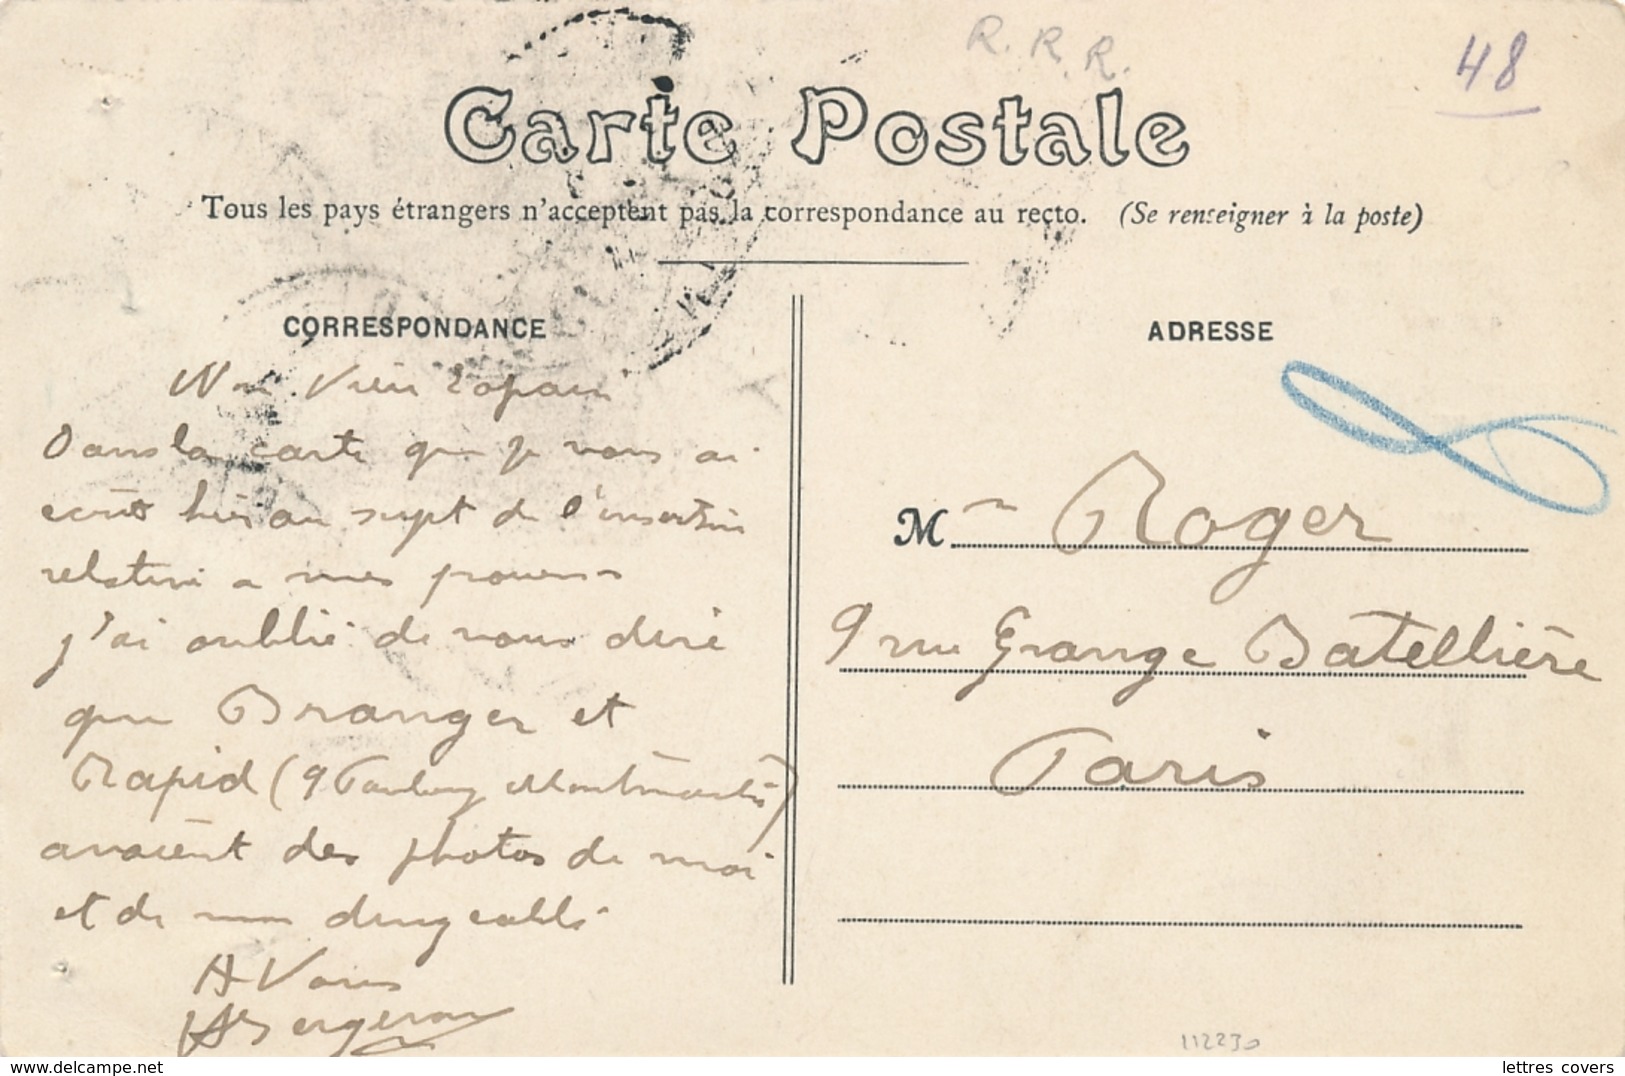 R. R. R.
48
Carte Postale
Tous les pays étrangers n'acceptent pas la correspondance au recto. (Se renseigner à la poste)
CORRESPONDANCE
Mon Vieux copain
Dans la carte que je vous ai
écrit hier au sujet de l'insertion
relative a mes
j'ai oublié de vous dire
que Branger et
Rapid (9 Faubourg Montmartre)
avaient des photos de moi
et de mon dirigeable
A Vous
ADRESSE
M Roger
9 rue Grange Batellière
Paris
112230
lettres covers